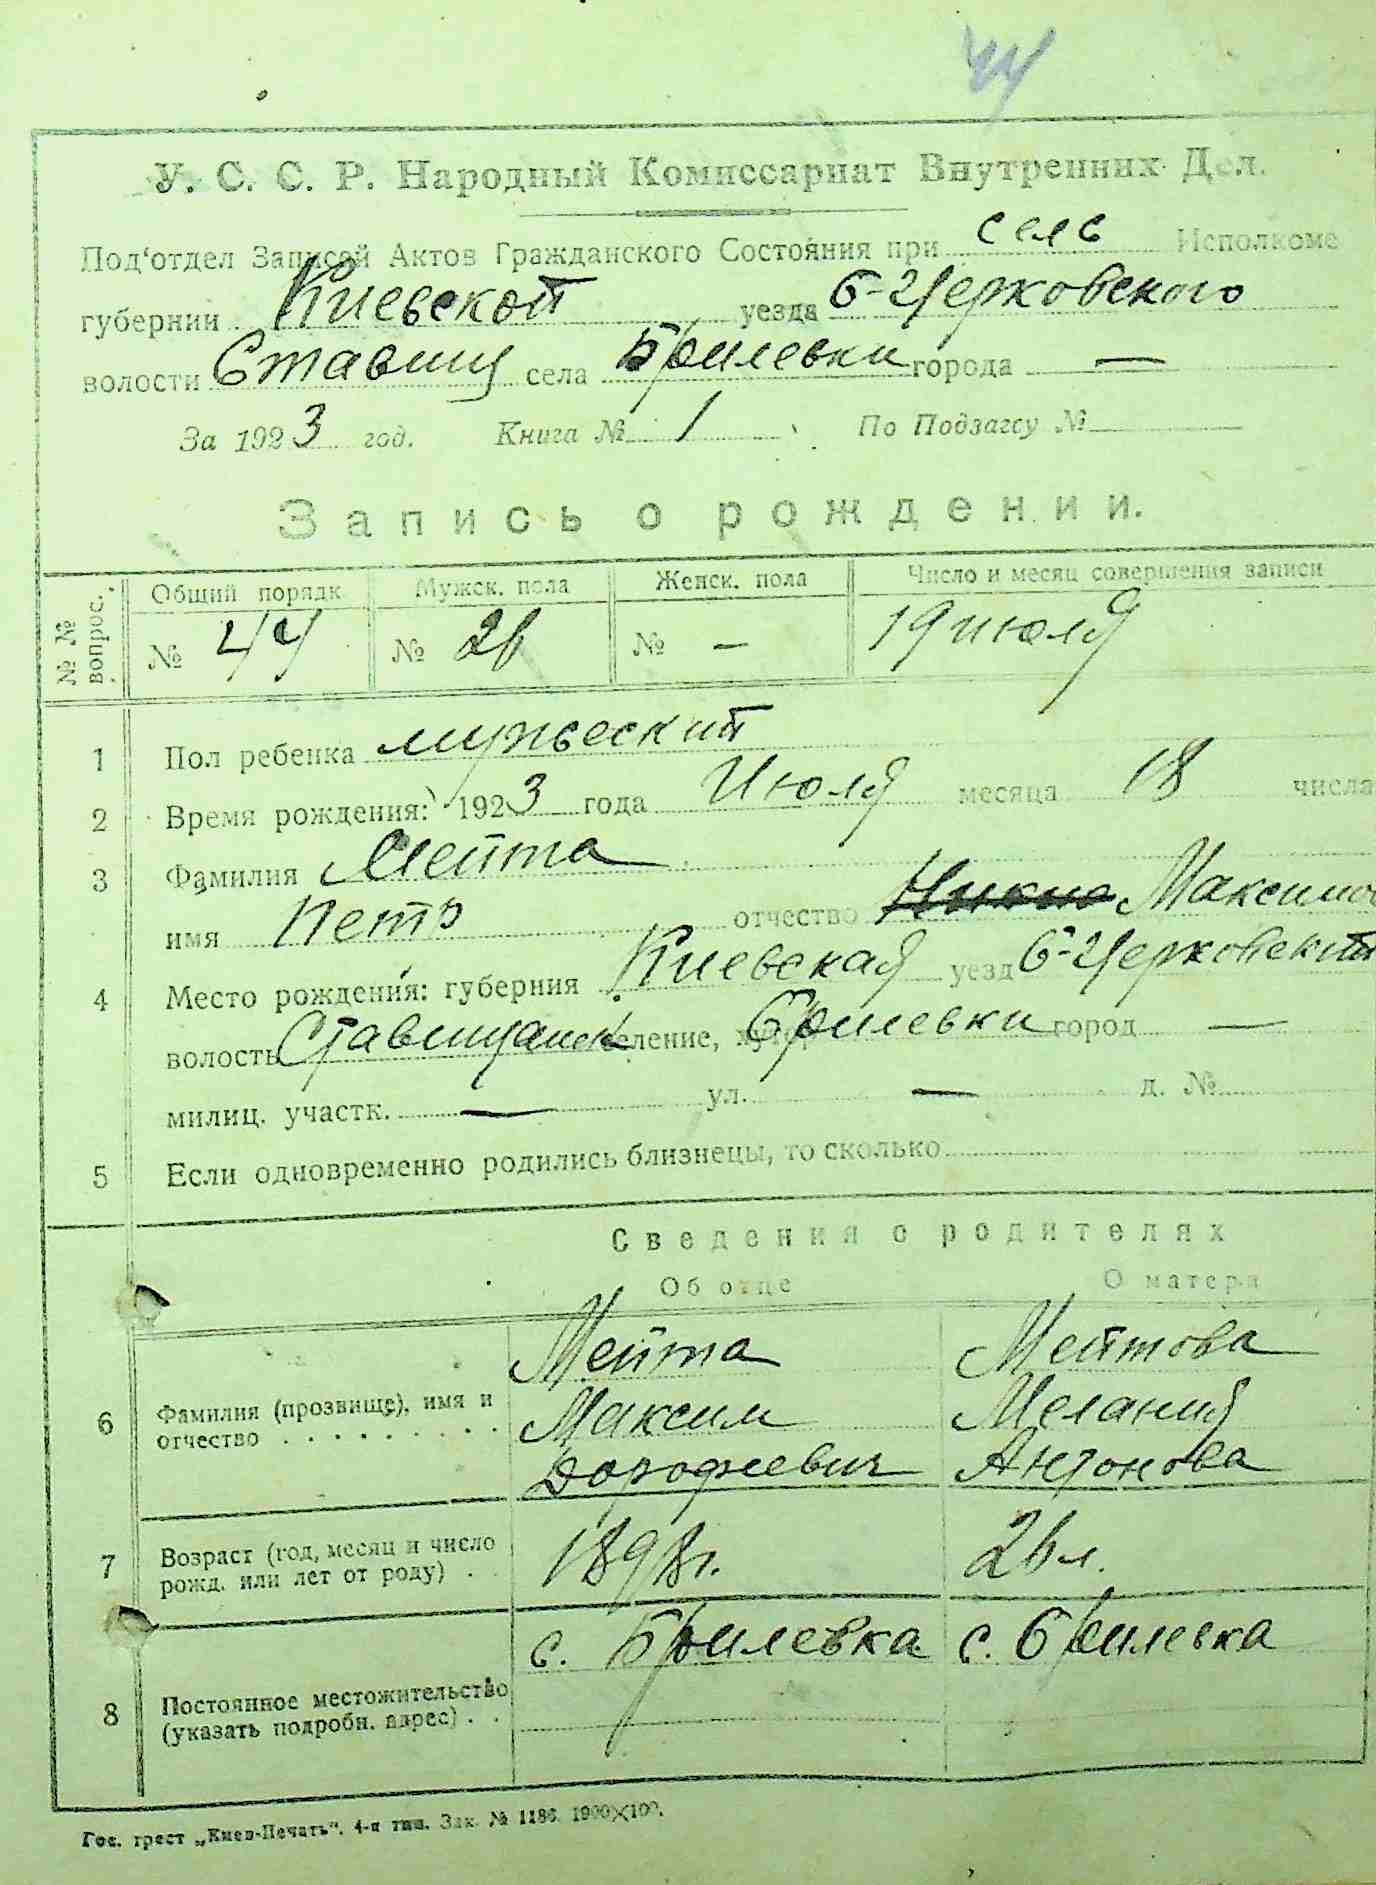 44
У. С. С. Р. Народный Комиссариат Внутренних Дел.
Под‘отдел Записей Актов Гражданского Состояния при сель Исполкоме
губернии Киевской уезда Б-Церковского
волости Ставищ села Брилевки города —
За 1923 год. Книга № 1 По Подзагсу №
Запись о рождении.
№ № вопрос. Общий порядк. Мужск. пола Женск. пола Число и месяц совершения записи
№ 44 № 26 № — 19 июля
1 Пол ребенка мужеский
2 Время рождения: 1923 года Июля месяца 18 числа
3 Фамилия Мейта
имя Петр отчество Максимов
4 Место рождения: губерния Киевская уезд Б-Церковский
волость Ставищанск селение, хутор Брилевки город —
милиц. участк. — ул. — д. №
5 Если одновременно родились близнецы, то сколько
Сведения о родителях
Об отце О матери
Мейта Мейтова
6 Фамилия (прозвище), имя и Максим Мелания
отчество . . . . . . . . . Дорофеевич Антонова
7 Возраст (год, месяц и число 1898 г. 26 л.
рожд. или лет от роду) . .
с. Брилевка с. Брилевка
8 Постоянное местожительство
(указать подробн. адрес) . .
Гос. трест „Киев-Печать“. 4-я тип. Зак. № 1186. 1900×100.